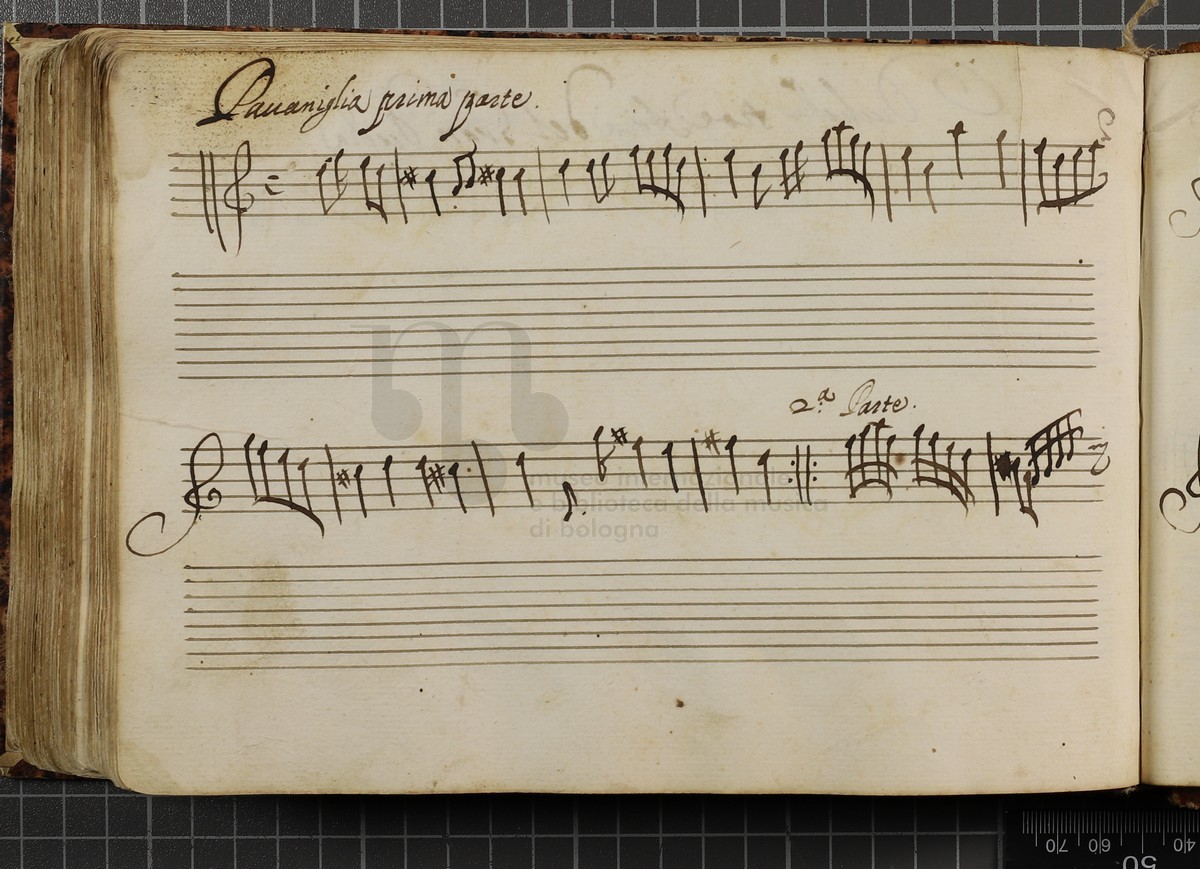 Pauaniglia prima parte.
2.ª Parte.
museo internazionale
e biblioteca della musica
di bologna
70 60 50 40